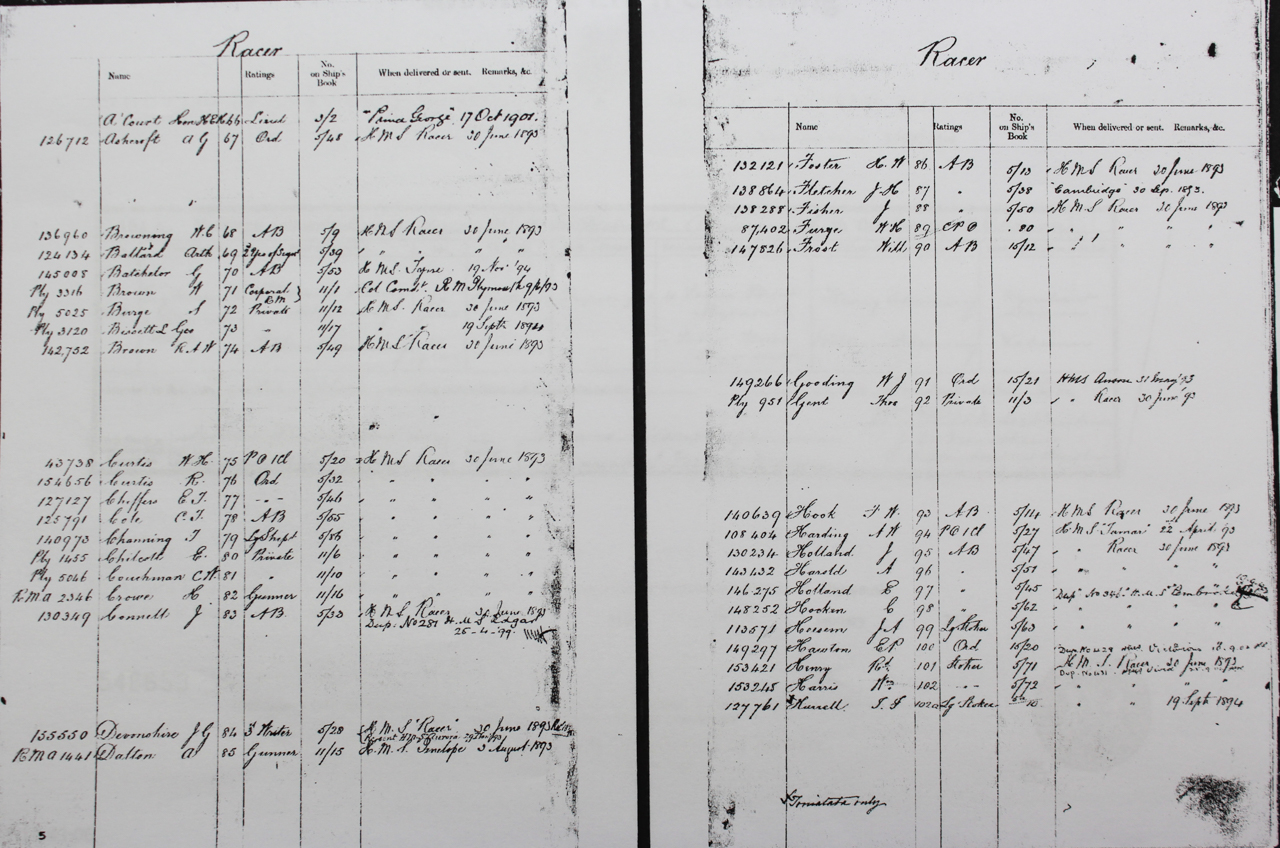 Racer
Name Ratings No. on Ship's Book When delivered or sent. Remarks, &c.
A'Court Hon H E 66 Lieut 3/2 "Prince George" 17 Oct 1901.
126712 Ashcroft A G 67 Ord 5/48 H.M.S Racer 30 June 1893
136960 Browning W C 68 AB 5/9 H.M.S Racer 30 June 1893
124134 Ballard Arth 69 5/39 " " " "
145008 Batchelor G 70 AB 5/53 H.M.S. 19 Nov '94
Ply 3316 Brown W 71 Corporal R M 11/1 Col Comdt. R M Plymouth 9/6/93
Ply 5025 Burge S 72 Private 11/12 H.M.S. Racer 30 June 1893
Ply 3120 Bissett L Geo 73 " 11/17 " " 19 Septr 1894
142,752 Brown R A W 74 AB 5/49 H.M.S Racer 30 June 1893
43738 Curtis W H. 75 P O 1Cl 5/20 H M S Racer 30 June 1893
154656 Curtis R. 76 Ord 5/32 " " " "
127127 Cheffers E J. 77 - - 5/46 " " " "
125791 Cole C. J. 78 AB 5/55 " " " "
140973 Channing J 79 Lg Shipt 5/56 " " " "
Ply 1455 Chilcott E. 80 Private 11/6 " " " "
Ply 5046 Couchman C W 81 " 11/10 " " " "
R M A 2346 Crowe H 82 Gunner 11/16 " " " "
130349 Connell J 83 AB 5/33 H.M.S. Racer 30 June 1893
Dup: No 287 H.M.S Edgar
25-4-99.
155550 Devonshire J G 84 3 Writer 5/28 H.M.S "Racer" 30 June 1893
R M A 1441 Dalton A 85 Gunner 11/15 H.M.S. Penelope 3 August 1893
5
Racer
Name Ratings No. on Ship's Book When delivered or sent. Remarks, &c.
132121 Foster H. W 86 AB 5/13 H M S Racer 30 June 1893
138864 Fletcher J H 87 " 5/38 "Cambridge" 30 Sep. 1893.
138288 Fisher J 88 " 5/50 H M S Racer 30 June 1893
87,402 Furge W H 89 C P O 80 " " " "
147826 Frost Will 90 AB 15/12 " "
149266 Gooding W J 91 Ord 15/21 HMS Anson 31 May '93
Ply 951 Gent Thos 92 Private 11/3 " " Racer 30 June '93
140639 Hook F W. 93 AB 5/14 H.M.S Racer 30 June 1893
108404 Harding A W 94 P O 1Cl 5/27 H.M.S "Tamar" 22 April 93
130234 Holland J 95 AB 5/47 " " Racer 30 June 1893
143432 Harold A 96 " 5/51 " " " "
146275 Holland E 97 " 5/45 Dup No 346 H.M.S
148252 Hooken C 98 " 5/62 " " " "
113571 J A 99 Lg Stoker 5/63 " " " "
149297 Hawton E P 100 Ord 15/20 Victorious
153421 Henry Rd 101 Stoker 5/71 H M S. Racer 30 June 1893
153245 Harris Wm 102 - - 5/72 " " " "
127761 Hurrell J. J 102a Lg Stoker " " 19 Septr 1894
only